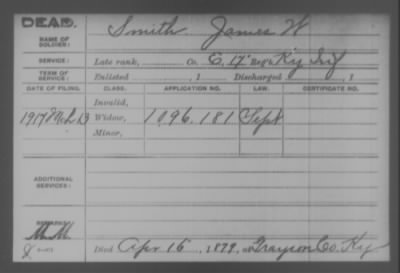 DEAD.
NAME OF SOLDIER: Smith James W
SERVICE: Late rank, Co. E, 17 Reg't Ky Inf
TERM OF SERVICE: Enlisted , 1 Discharged , 1
DATE OF FILING. CLASS. APPLICATION NO. LAW. CERTIFICATE NO.
Invalid,
1917 Mch 13 Widow, 1096.181 Sept
Minor,
ADDITIONAL SERVICES:
REMARKS:
M.M.
Died Apr 15, 1879, at Grayson Co. Ky